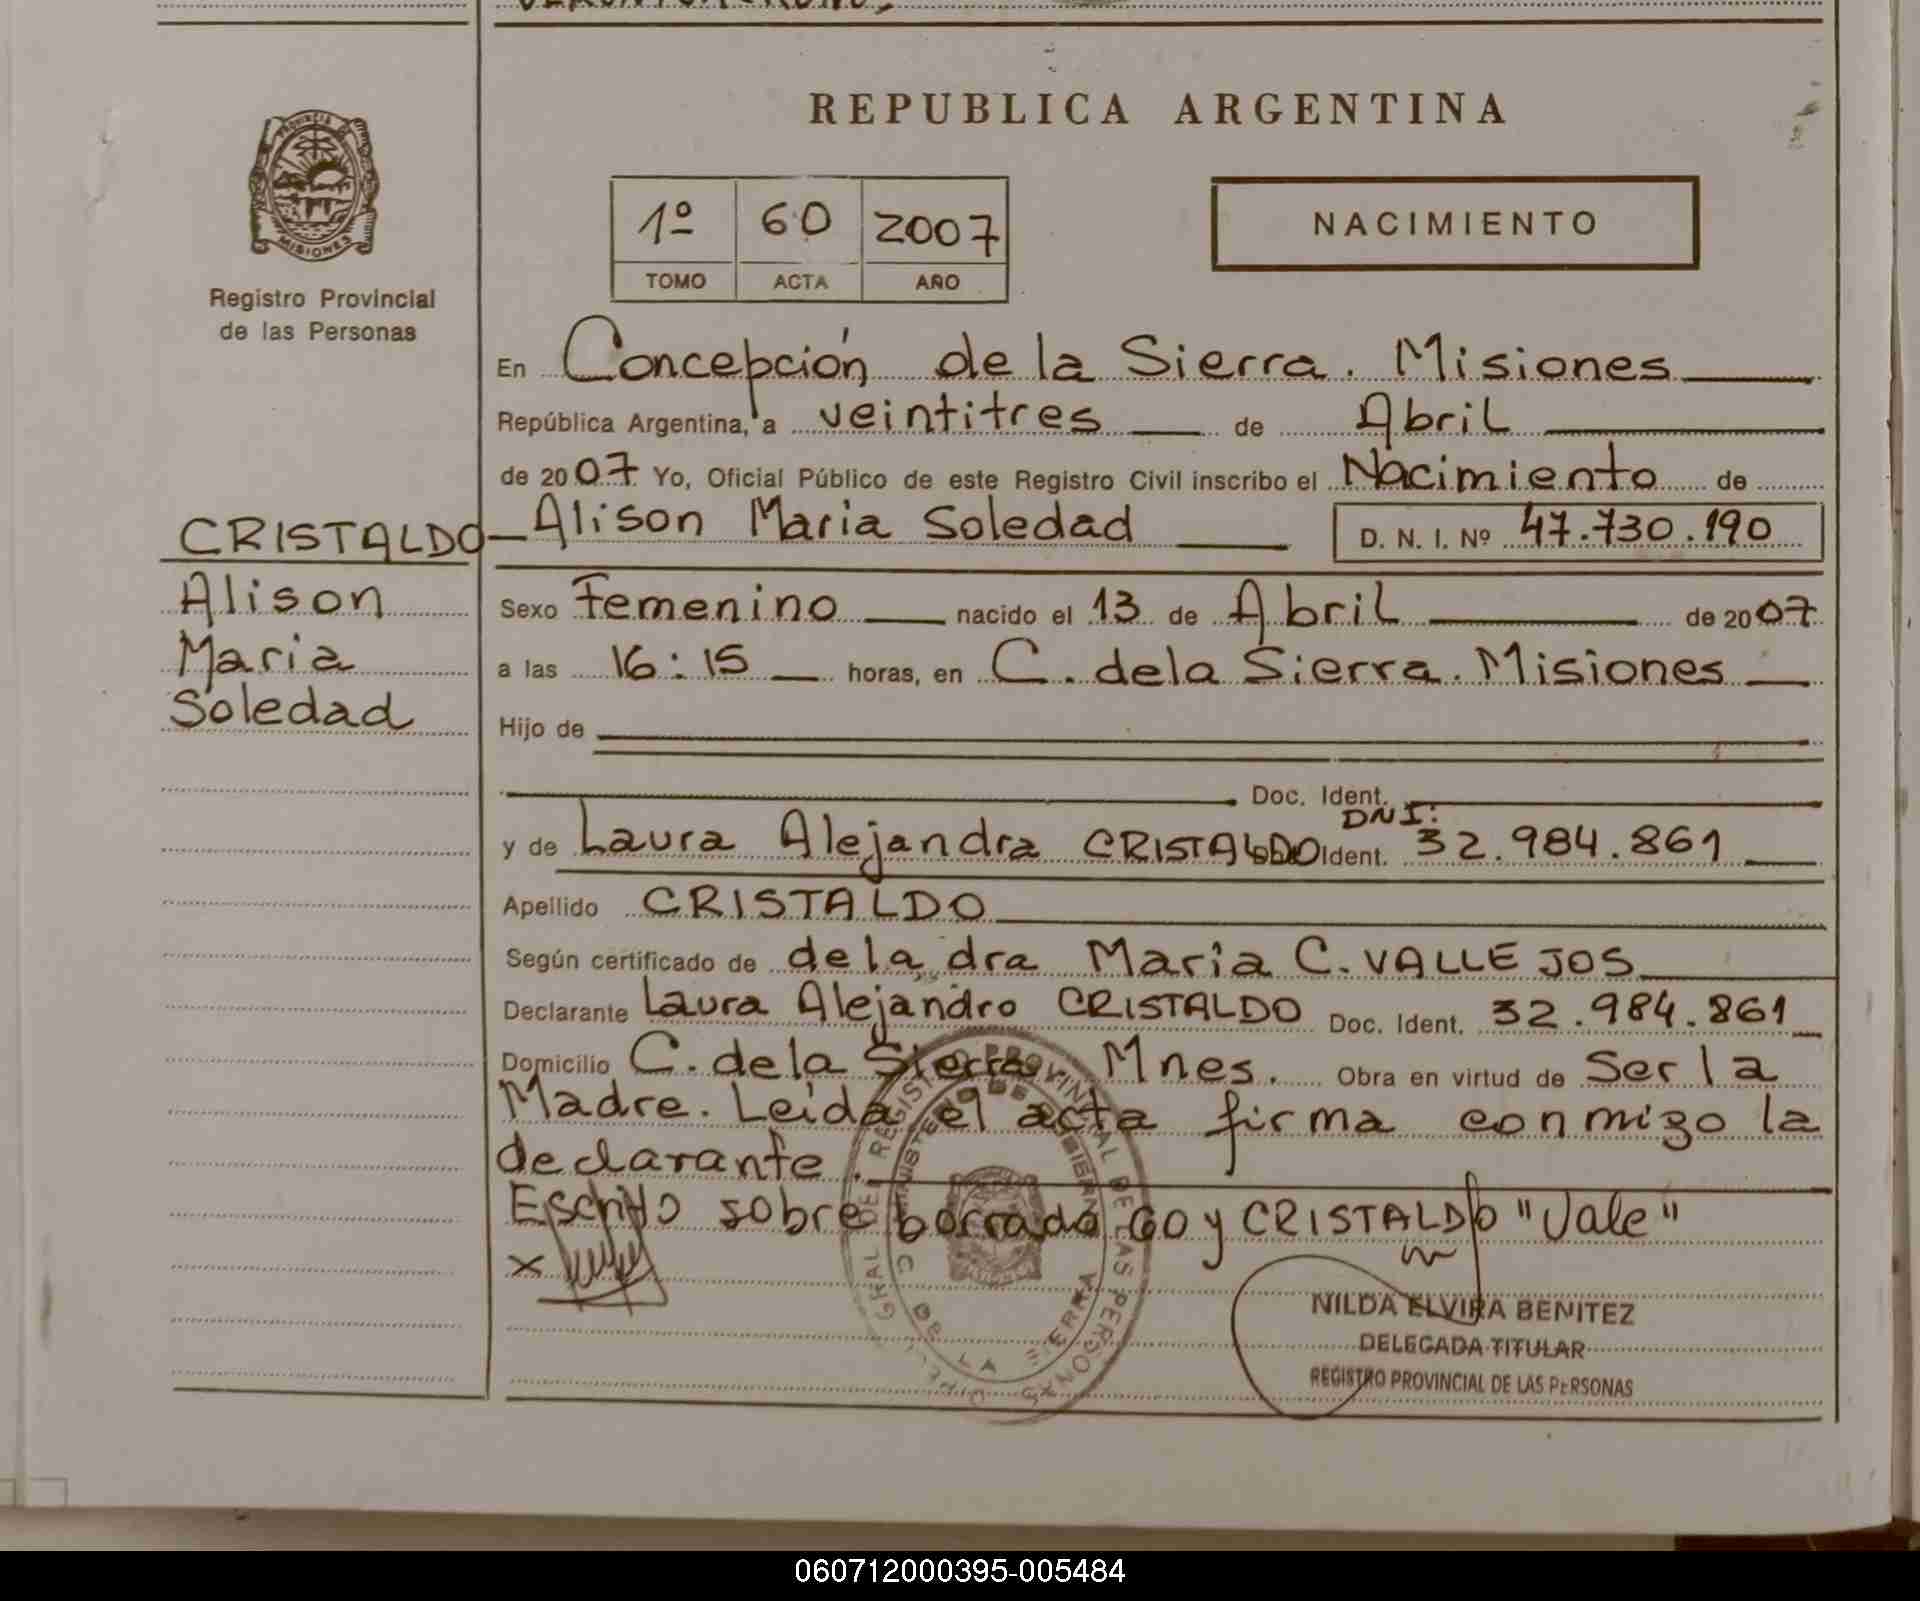 REPUBLICA ARGENTINA
PROVINCIA DE
MISIONES
Registro Provincial
de las Personas
1º 60 2007
TOMO ACTA AÑO
NACIMIENTO
En Concepción de la Sierra. Misiones
República Argentina, a veintitres de Abril
de 2007 Yo, Oficial Público de este Registro Civil inscribo el Nacimiento de
CRISTALDO Alison Maria Soledad D. N. I. Nº 47.730.190
Alison
Maria
Soledad
Sexo Femenino nacido el 13 de Abril de 2007
a las 16:15 horas, en C. dela Sierra. Misiones
Hijo de
Doc. Ident.
y de Laura Alejandra CRISTALDO Ident. DNI: 32.984.861
Apellido CRISTALDO
Según certificado de dela dra Maria C. VALLEJOS
Declarante Laura Alejandro CRISTALDO Doc. Ident. 32.984.861
Domicilio C. dela Sierra Mnes. Obra en virtud de Ser la
Madre. Leída el acta firma conmigo la
declarante.
Escrito sobre borrado 60 y CRISTALDO "Vale"
x
NILDA ELVIRA BENITEZ
DELEGADA TITULAR
REGISTRO PROVINCIAL DE LAS PERSONAS
060712000395-005484